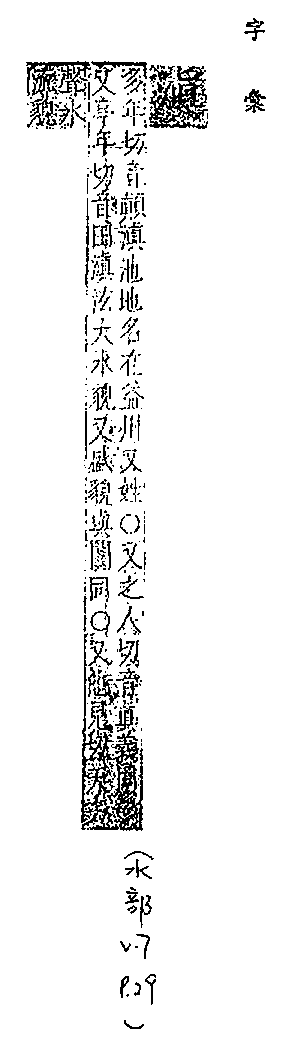 字彙
多年切音顛滇池地名在益州又姓〇又之人切音真義同
又亭年切音田滇㳒大水貌又盛貌與闐同〇又他見切
聲水
貌
(水部
v.7
P.29
)